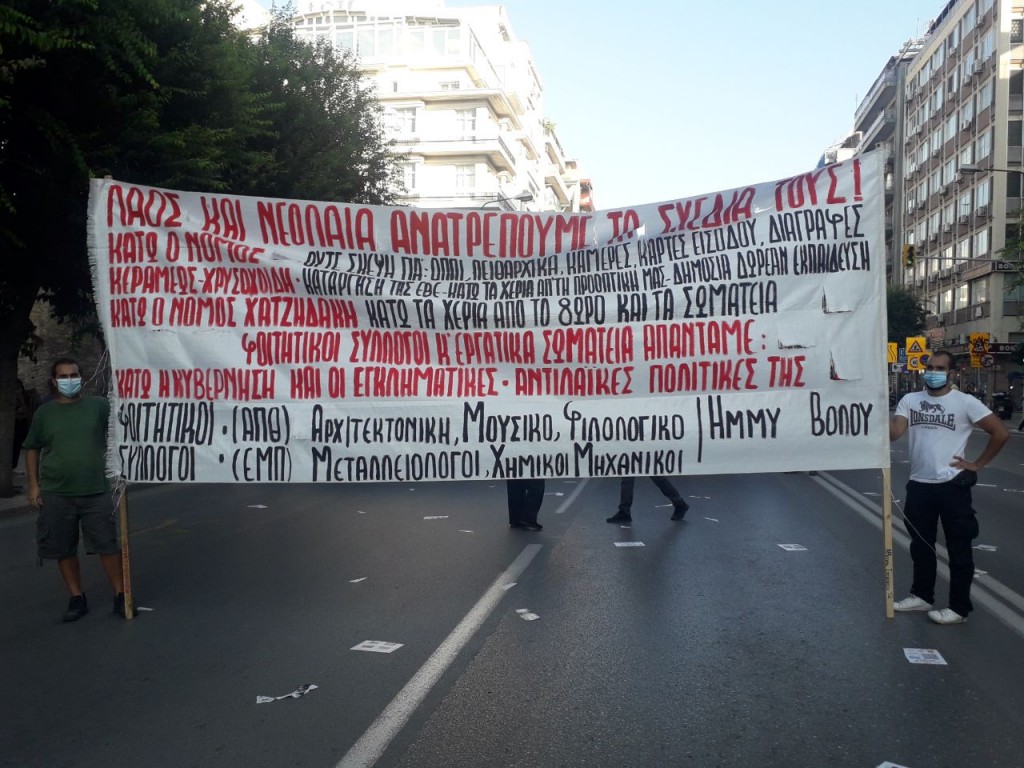 ΛΑΟΣ ΚΑΙ ΝΕΟΛΑΙΑ ΑΝΑΤΡΕΠΟΥΜΕ ΤΑ ΣΧΕΔΙΑ ΤΟΥΣ!
ΚΑΤΩ Ο ΝΟΜΟΣ ΟΥΤΕ ΣΚΕΨΗ ΓΙΑ: ΟΠΠΙ, ΠΕΙΘΑΡΧΙΚΑ, ΚΑΜΕΡΕΣ, ΚΑΡΤΕΣ ΕΙΣΟΔΟΥ, ΔΙΑΓΡΑΦΕΣ
ΚΕΡΑΜΕΩΣ-ΧΡΥΣΟΧΟΪΔΗ · ΚΑΤΑΡΓΗΣΗ ΤΗΣ ΕΒΕ - ΚΑΤΩ ΤΑ ΧΕΡΙΑ ΑΠ' ΤΗ ΠΡΟΟΠΤΙΚΗ ΜΑΣ - ΔΗΜΟΣΙΑ ΔΩΡΕΑΝ ΕΚΠΑΙΔΕΥΣΗ
ΚΑΤΩ Ο ΝΟΜΟΣ ΧΑΤΖΗΔΑΚΗ ΚΑΤΩ ΤΑ ΧΕΡΙΑ ΑΠΟ ΤΟ 8ΩΡΟ ΚΑΙ ΤΑ ΣΩΜΑΤΕΙΑ
ΦΟΙΤΗΤΙΚΟΙ ΣΥΛΛΟΓΟΙ Κ' ΕΡΓΑΤΙΚΑ ΣΩΜΑΤΕΙΑ ΑΠΑΝΤΑΜΕ:
ΚΑΤΩ Η ΚΥΒΕΡΝΗΣΗ ΚΑΙ ΟΙ ΕΓΚΛΗΜΑΤΙΚΕΣ · ΑΝΤΙΛΑΪΚΕΣ ΠΟΛΙΤΙΚΕΣ ΤΗΣ
ΦΟΙΤΗΤΙΚΟΙ · (ΑΠΘ) ΑΡΧΙΤΕΚΤΟΝΙΚΗ, ΜΟΥΣΙΚΟ, ΦΙΛΟΛΟΓΙΚΟ | ΗΜΜΥ ΒΟΛΟΥ
ΣΥΛΛΟΓΟΙ · (ΕΜΠ) ΜΕΤΑΛΛΕΙΟΛΟΓΟΙ, ΧΗΜΙΚΟΙ ΜΗΧΑΝΙΚΟΙ
LONSDALE